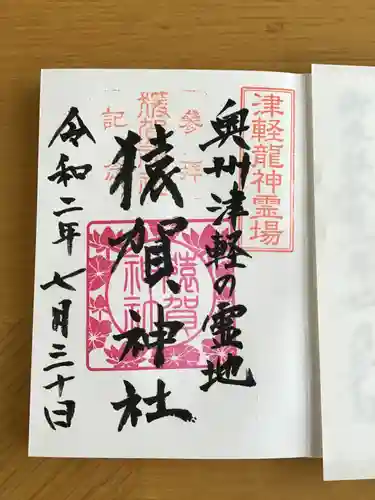 津軽龍神霊場
奥州津軽の霊地
参拝
記念
猿賀神社
猿賀
神社
令和二年七月三十日